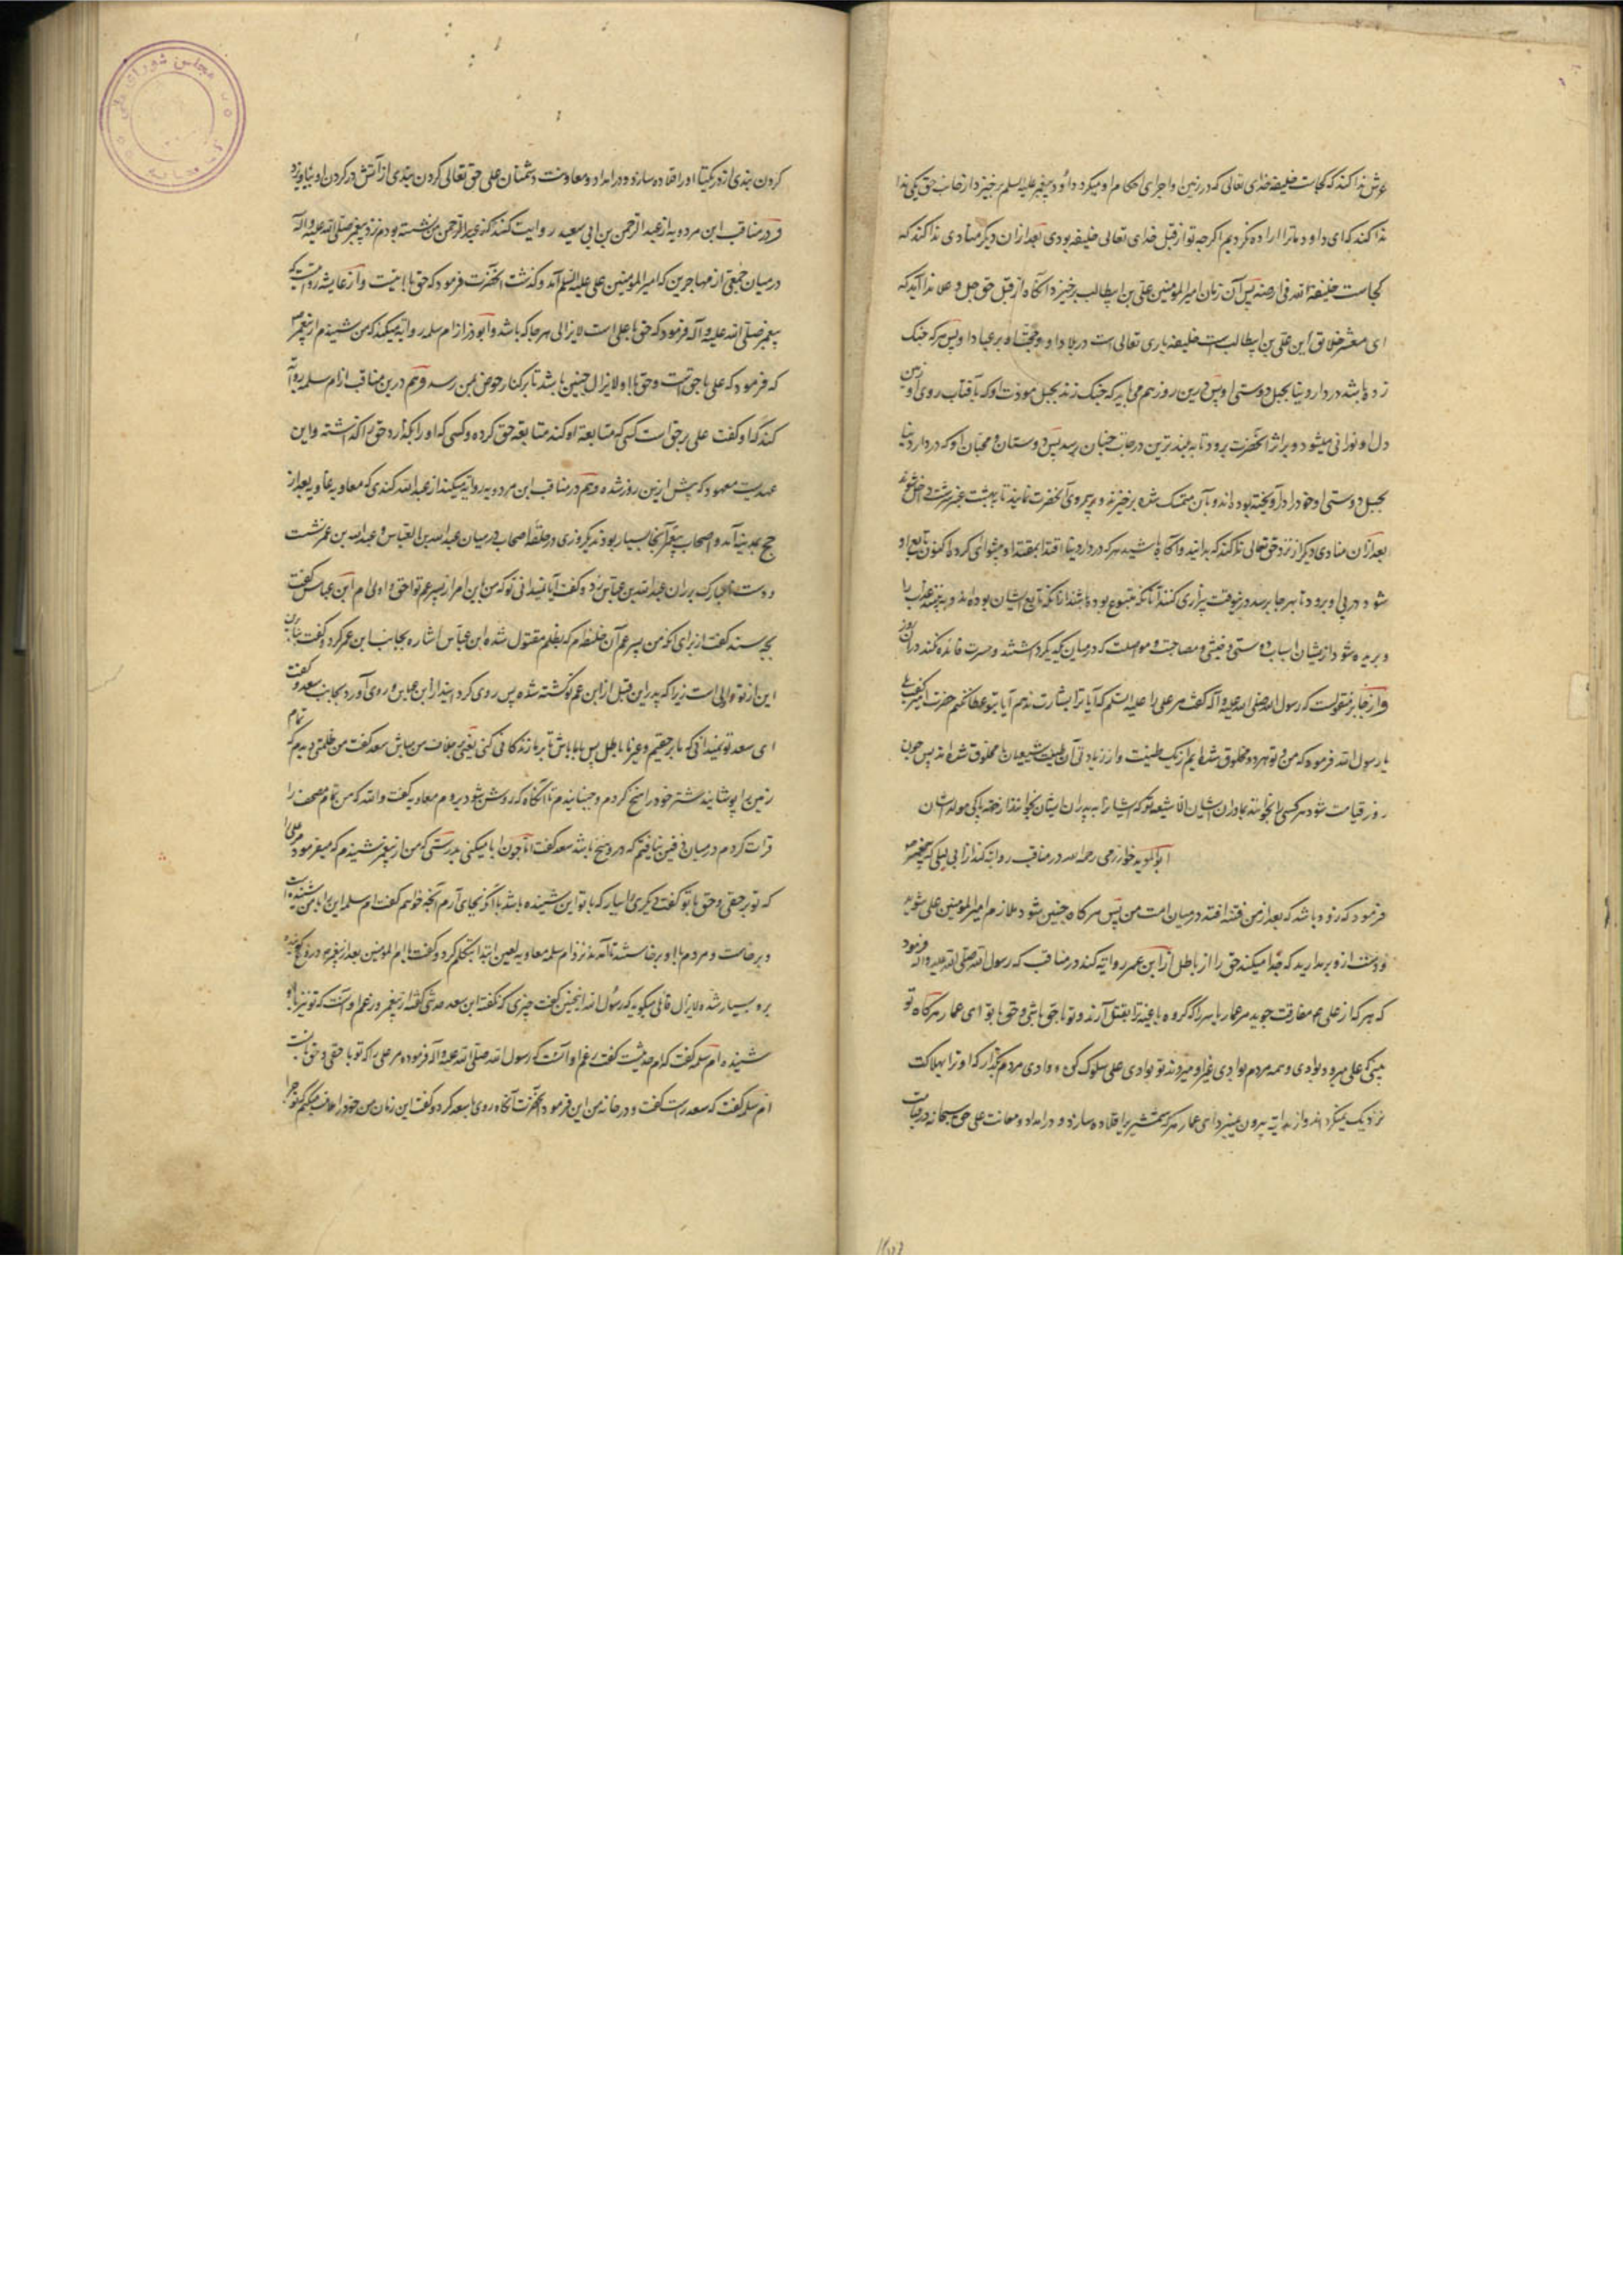 عرش ندا کند که کجاست خلیفه خدای تعالی که در زمین او اجرای احکام او میکرد داود پیغمبر علیه السلم برخیزد از جانب حق یکی ندا
ندا کند که ای داود ما ترا اراده نکردیم اگرچه تو از قبل خدای تعالی خلیفه بودی بعد از ان دیگر منادی ندا کند که
کجاست خلیفة الله فی ارضه پس آن زمان امیر المومنین علی بن ابیطالب برخیزد انگاه از قبل حق جل و علا ندا آید که
ای معشر خلایق این علی بن ابیطالب است خلیفه باری تعالی است در بلاد او و حجتاه بر عباد او پس هر که چنک
زده باشد در دار دنیا بحبل دوستی او پس درین روز هم می باید که چنک زند بحبل مودت او که بآفتاب روی او زمین
دل او نورانی میشود و بر اثر آنحضرت برود تا به بلندترین درجات جنان برسد پس دوستان و محبان او که در دار دنیا
بحبل دوستی او خود را در آویخته بوده اند و بآن متمسک شده برخیزند و پیروی آنحضرت نمایند تا به بهشت عنبر سرشت داخل شوند
بعد از ان منادی دیگر از نزد حق تعالی ندا کند که بدانید و آگاه باشید هر که در دار دنیا اقتدا بمقتدا و پیشوای کرده اکنون تابع او
شود در پی او برود تا بهر جا برسد درینوقت بیزاری کنند آنانکه متبوع بوده باشند از آنانکه تابع ایشان بوده اند و به بینند عذاب را
و بریده شود از میان ایشان اسباب دوستی و مصاحبت و مواصلت که در میان یکدیگر داشتند و حسرت فائده نکند در ان روز
و از جابر منقولست که رسول الله صلی الله علیه و آله گفت مر علی را علیه السلم که آیا ترا بشارت ندهم آیا بتو عطا نکنم حضرت امیر گفت بلی
یا رسول الله فرمود که من و تو هر دو مخلوق شده ایم از یک طینت و از زیادتی آن طینت شیعیان ما مخلوق شده اند پس چون
روز قیامت شود هر کسی را بخوانند بمادران ایشان الا شیعه تو که ایشانرا به پدران ایشان بخوانند از جهة پاکی مولد ایشان
ابو الموید خوارزمی رحمه الله در مناقب روایة کند از ابی لیلی که پیغمبر
فرمود که زود باشد که بعد از من فتنه افتد در میان امت من پس هر کاه چنین شود ملازم امیر المومنین علی شوید
و دست ازو بر مدارید که جدا میکند حق را از باطل از ابن عمر روایة کند در مناقب که رسول الله صلی الله علیه و آله فرمود
که هر که از علی مفارقت جوید مر عمار یاسر را که گروه باغیه ترا بقتل آرند و تو با حق باشی و حق با تو ای عمار هرکاه تو
بینی که علی میرود بوادی و همه مردم بوادی غیر او میروند تو بوادی علی سلوک کن و وادی مردم بگذار که او ترا بهلاکت
نزدیک نمیکرداند و از هدایة بیرون نمیبرد ای عمار هر که شمشیر برا قلاده سازد و در امداد و معاونت علی حق سبحانه در قیامت
کردن بندی از در یکتا او را قلاده سازد و در امداد و معاونت دشمنان علی حق تعالی کردن بندی از آتش در کردن او بیاویزد
و در مناقب ابن مردویه از عبد الرحمن بن ابی سعید روایت کنند که عبد الرحمن من نشسته بودم نزد پیغمبر صلی الله علیه و آله
در میان جمعی از مهاجرین که امیر المومنین علی علیه السلم آمد و گذشت آنحضرت فرمود که حق با اینست و از عایشه روایتست که
پیغمبر صلی الله علیه و آله فرمود که حق با علی است لا یزالی هر جا که باشد و ابو ذر از ام سلمه روایة میکند که من شنیدم از پیغمبر
که فرمود که علی با حق است و حق با او لا یزال چنین باشد تا بر کنار حوض بمن رسد و هم درین مناقب از ام سلمه روایة
کند که او گفت علی بر حق است کسی که متابعة او کند متابعة حق کرده و کسی که او را بگذارد حق را گذاشته و این
عهدیست معهود که پیش ازین روز شده و هم در مناقب ابن مردویه روایة میکند از عبد الله کندی که معاویه بعد از
حج بمدینه آمد و اصحاب پیغمبر آنجا بسیار بودند یکروزی در حلقه اصحاب در میان عبد الله بن العباس و عبد الله بن عمر نشست
و دست نامبارک بر ران عبد الله بن عباس زد و گفت آیا نمیدانی تو که من باین امر از پسر عم تو احق و اولی ام ابن عباس گفت
بچه سند گفت از برای آنکه من پسر عم آن خلیفه ام که بظلم مقتول شده ابن عباس اشاره بجانب ابن عمر کرد و گفت
این از تو اولی است زیرا که پدر این قبل از ابن عم تو کشته شده پس روی کردانید از ابن عباس و روی آورد بجانب سعد و گفت
ای سعد تو نمیدانی که ما بر حقیم و غیر ما باطل پس با ما باش تا بر ما زندگانی کنی سعد گفت من ظلمتی دیدم که تمام
زمین را پوشانید شتر خود را منخ کردم و خسبانیدم تا آنگاه که روشن شود بروم معاویه گفت و الله که من تمام مصحف را
قرات کردم در میان دفتین نیافتم که درو منخ باشد سعد گفت اما چون ابا میکنی بدرستی که من از پیغمبر شنیدم که میفرمود مر علی را
که تو بر حقی و حق با تو گفت دیگری را بیار که با تو این شنیده باشد یا آنکه بجای آرم آنچه خواهم گفت ام سلمه این را با من شنیده است
و برخاست و مردم با او برخاستند تا آمدند نزد ام سلمه معاویه لعین ابتدا بتکلم کرد و گفت یا ام المومنین بعد از پیغمبر دروغ گوینده
برو بسیار شده لا یزال قائلی میگوید که رسول الله اینچنین گفت چیزی که نگفته ابن سعد حدیثی گفته از پیغمبر و زعم او آنست که تو نیز با او
شنیده ام سلمه گفت کدام حدیث گفت زعم او آنست که رسول الله صلی الله علیه و آله فرموده مر علی را که تو با حقی و حق با تست
ام سلمه گفت که سعد راست گفت و در خانه من این فرمود آنحضرت آنگاه روی با سعد کرد و گفت این زمان من خود را